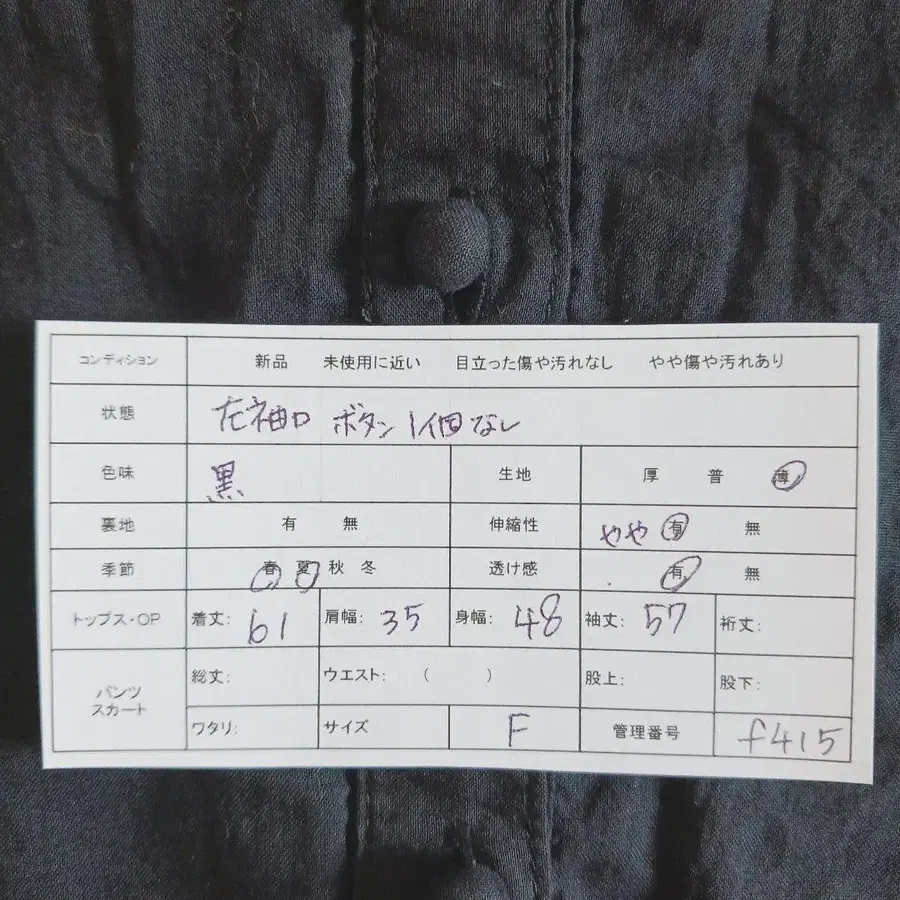 コンディション 新品 未使用に近い 目立った傷や汚れなし やや傷や汚れあり
状態 左袖口 ボタン1個なし
色味 黒 生地 厚 普 薄
裏地 有 無 伸縮性 やや 有 無
季節 春 夏 秋 冬 透け感 有 無
トップス・OP 着丈: 61 肩幅: 35 身幅: 48 袖丈: 57 裄丈:
パンツ スカート 総丈: ウエスト: ( ) 股上: 股下:
ワタリ: サイズ F 管理番号 f415